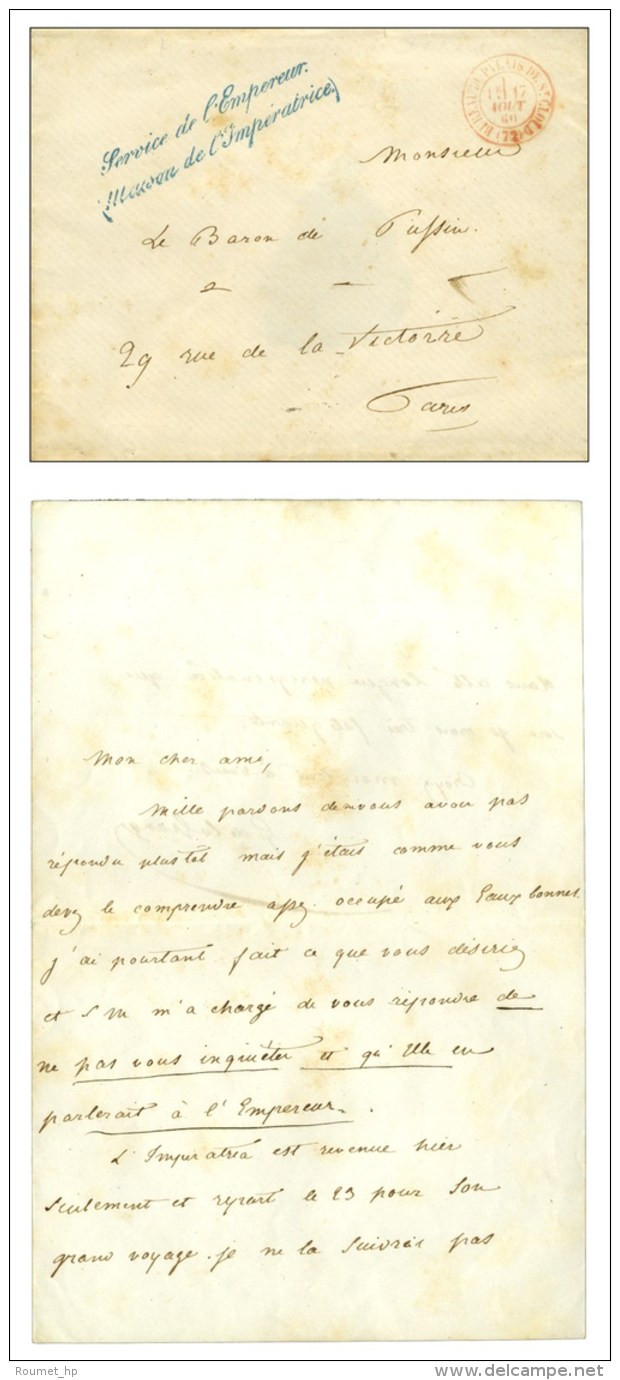 Service de l'Empereur.
(Maison de l'Impératrice)
PALAIS DE St CLOUD
17
AOUT
60
(72)
Monsieur
Le Baron de Pussin.
29 rue de la Victoire
Paris
Mon cher ami,
Mille pardons de vous avoir pas
répondu plustot mais j'étais comme vous
devez le comprendre assez occupé aux Eaux bonnes
j'ai pourtant fait ce que vous désiriez
et S M m'a chargé de vous répondre de
ne pas vous inquiéter et qu'Elle en
parlerait à l'Empereur.
L'Impératrice est revenue hier
seulement et repart le 23 pour son
grand voyage. je ne la suivrai pas
Roumet_hp
delcampe.net